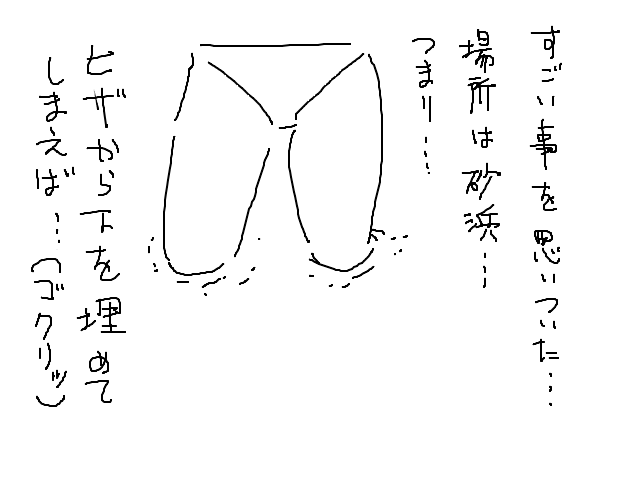 すごい事を思いついた…
場所は砂浜…
つまり…
ヒザから下を埋めて
しまえば…(ゴクリッ)